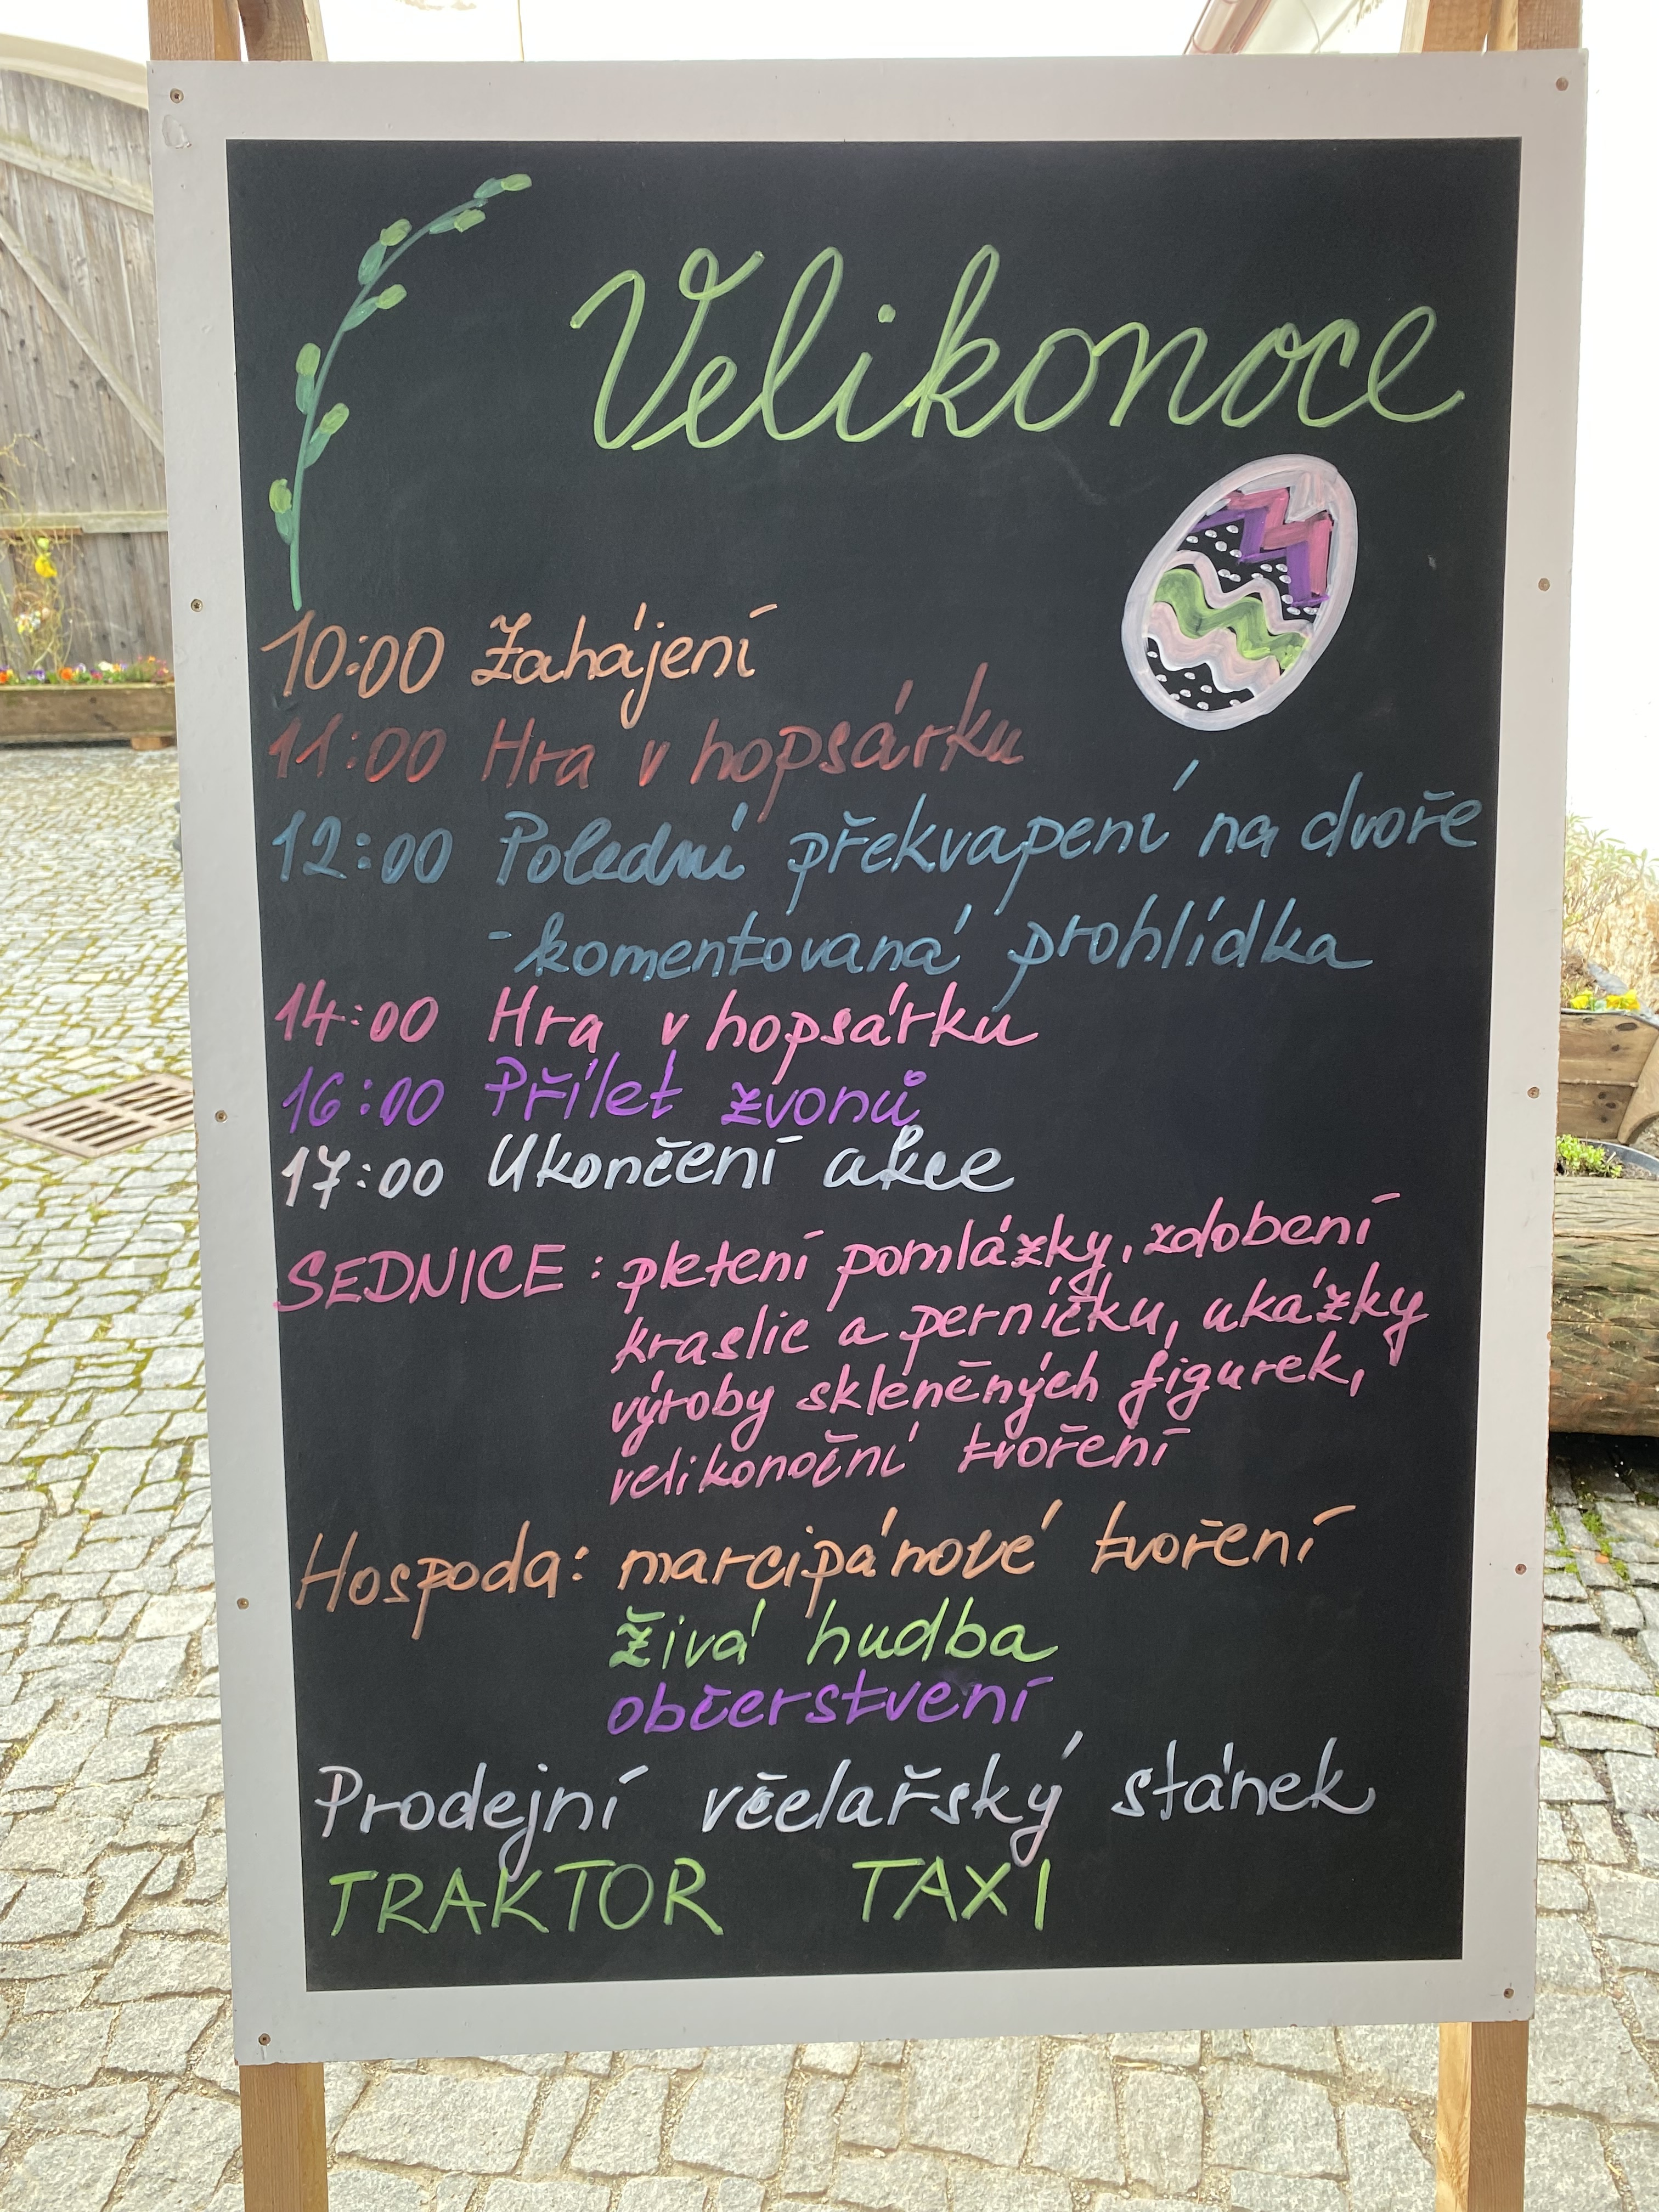 Velikonoce
10:00 Zahájení
11:00 Hra v hopsárku
12:00 Polední překvapení na dvoře
- komentovaná prohlídka
14:00 Hra v hopsárku
16:00 Přílet zvonů
17:00 Ukončení akce
SEDNICE: pletení pomlázky, zdobení
kraslic a perníčku, ukázky
výroby skleněných figurek,
velikonoční tvoření
Hospoda: marcipánové tvoření
živá hudba
občerstvení
Prodejní včelařský stánek
TRAKTOR TAXI